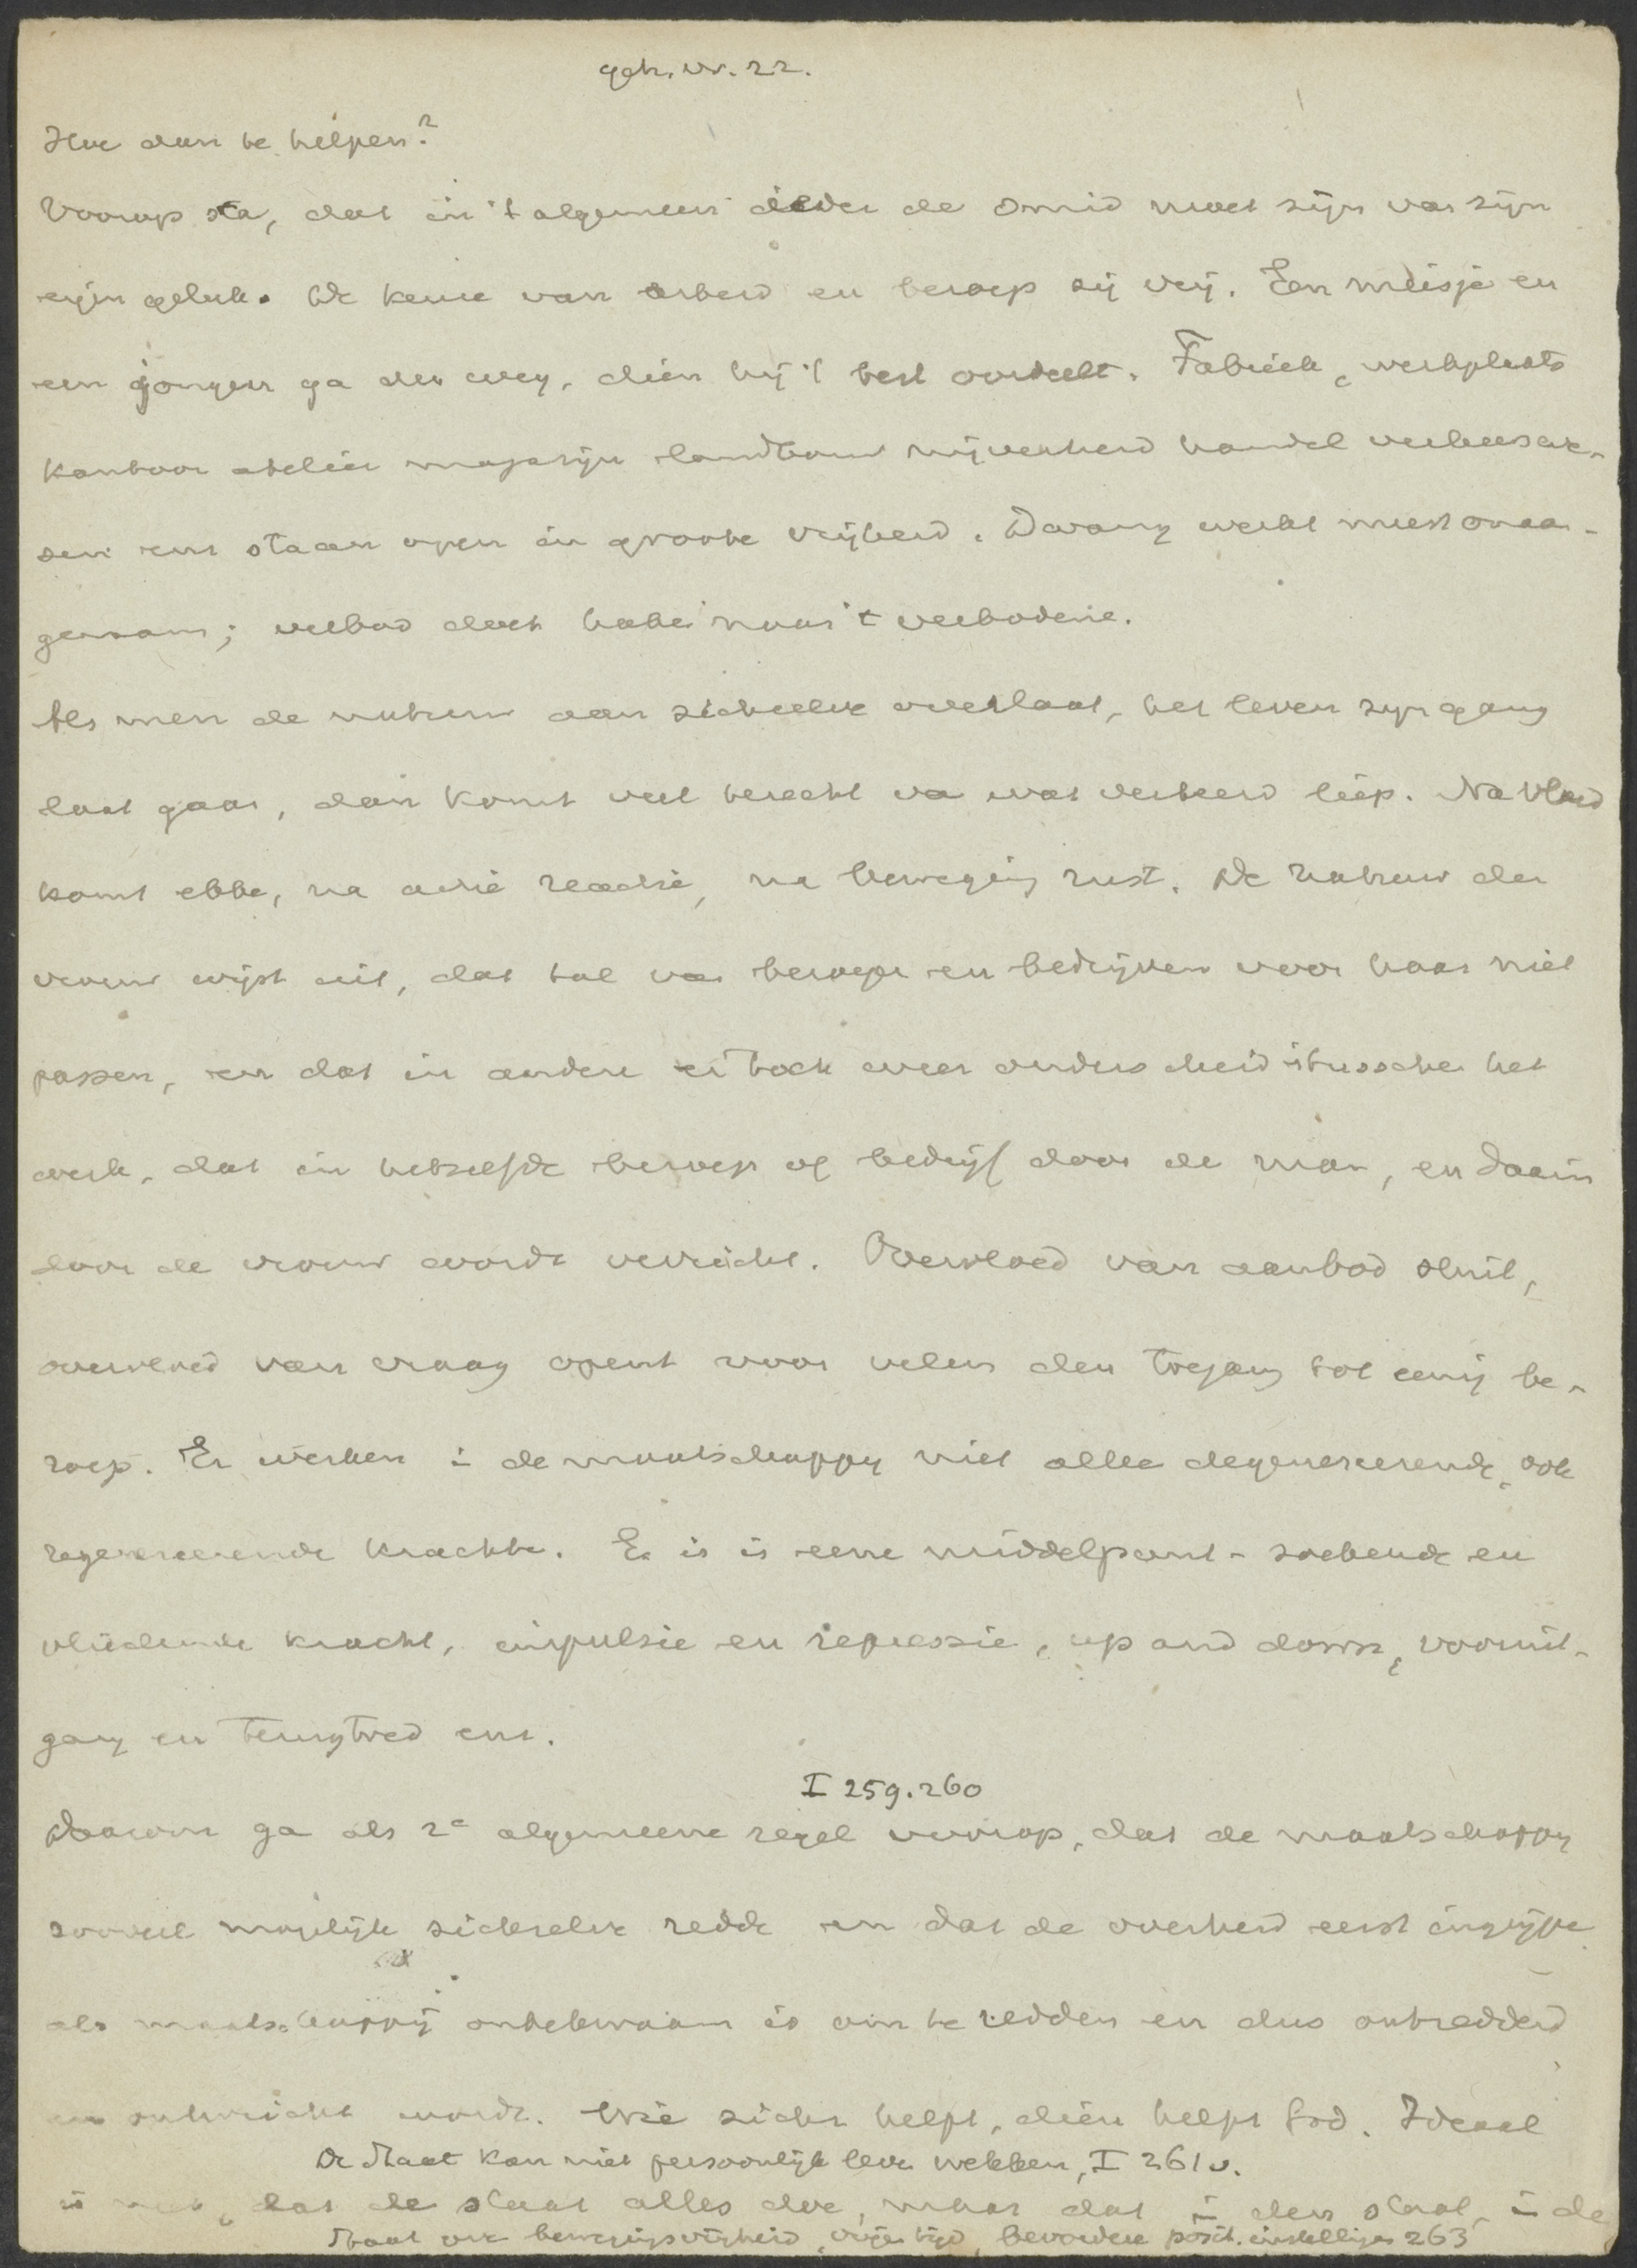 geh. vr. 22.
Hoe dan te helpen?
Voorop sta, dat in 't algemeen ieder de smid moet zijn van zijn
eigen geluk. De keuze van arbeid en beroep zij vrij. Een meisje en
een jongen ga den weg, dien hij 't best oordeelt. Fabriek, werkplaats
kantoor atelier magazijn landbouw nijverheid handel verkeerswe-
zen enz staan open in groote vrijheid. Dwang werkt meest onaan-
genaam; verbod doet haken naar 't verbodene.
Als men de natuur aan zichzelve overlaat, het leven zijn gang
laat gaan, dan komt veel terecht van wat verkeerd liep. Na vloed
komt ebbe, na actie reactie, na beweging rust. De natuur der
vrouw wijst uit, dat tal van beroepen en bedrijven voor haar niet
passen, en dat in andere er toch weer onderscheid is tusschen het
werk, dat in hetzelfde beroep of bedrijf door de man, en daarin
door de vrouw wordt verricht. Overvloed van aanbod sluit,
overvloed van vraag opent voor velen den toegang tot eenig be-
roep. Er werken in de maatschappy niet alleen degenereerende, ook
regenereerende krachten. Er is is eene middelpunt-zoekende en
vliedende kracht, impulsie en repressie, up and down, vooruit-
gang en terugtred enz.
I 259. 260
Daarom ga als 2e algemeene regel voorop, dat de maatschappy
zooveel mogelijk zichzelve redde en dat de overheid eerst ingrijpe
als maatschappij onbekwaam is om te redden en dus ontredderd
en ontwricht wordt. Wie zich helpt, dien helpt God. Ideaal
De Staat kan niet persoonlijk leven wekken, I 261 v.
is niet, dat de staat alles doe, maar dat in den staat, in de
Staat ook bewegingsvrijheid, vrijen tijd, bevordere posit. instellingen 263